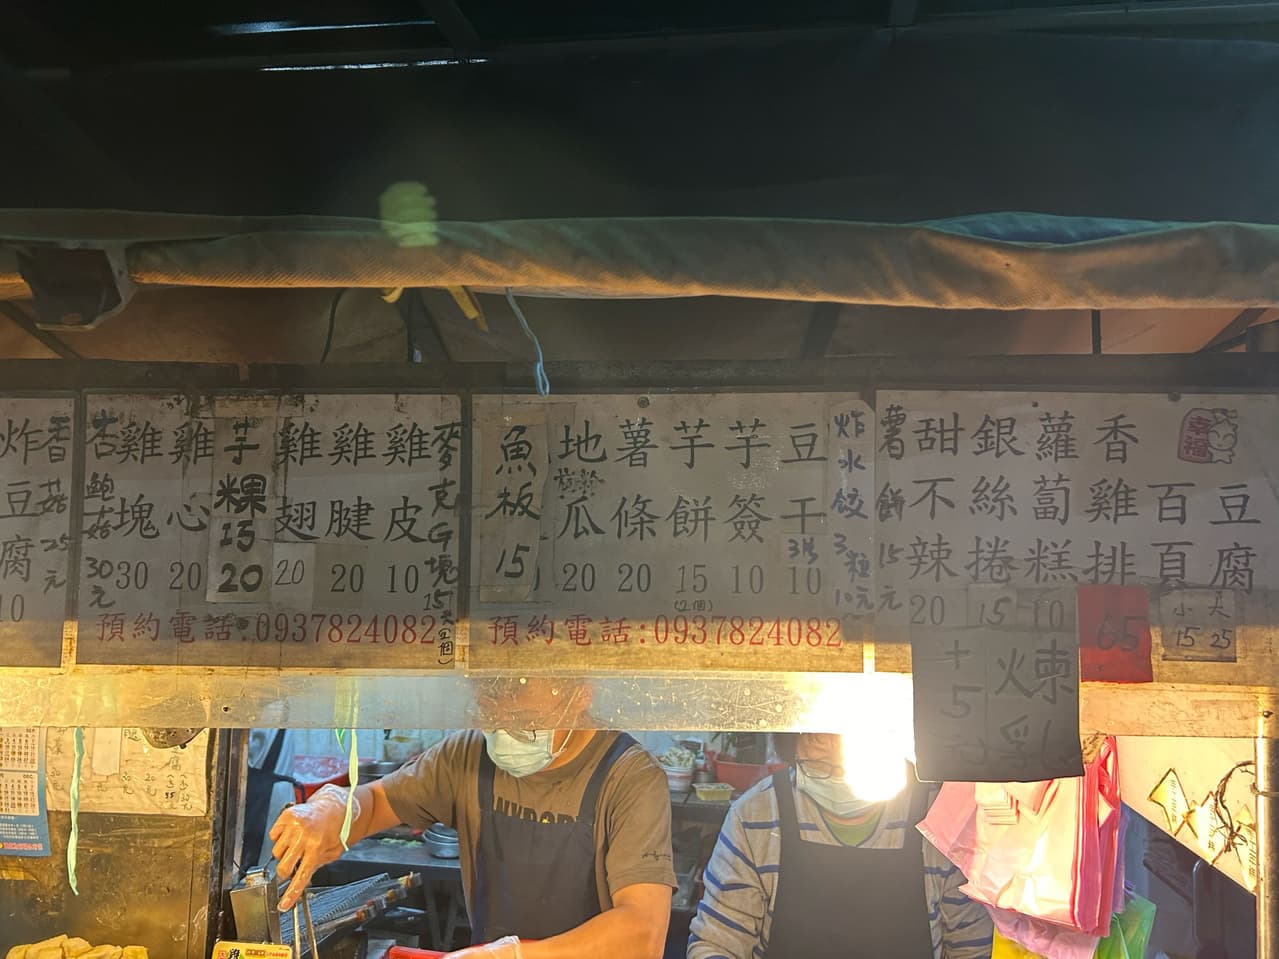 豆腐 小15 大25
百頁
香雞排 65
蘿蔔糕 10
銀絲捲 15
甜不辣 20
+5元 煉乳
薯餅 15元
炸水餃 3粒 10元
豆干 10
芋簽 10
芋餅 15 (2個)
薯條 20
地瓜 20
魚板 15
預約電話:0937824082
麥克雞塊 15元(2個)
雞皮 10
雞腱 20
雞翅 20
芋粿巧 20
雞心 20
雞塊 30
杏鮑菇 30元
預約電話:0937824082
香菇 25元
炸豆腐
幸福